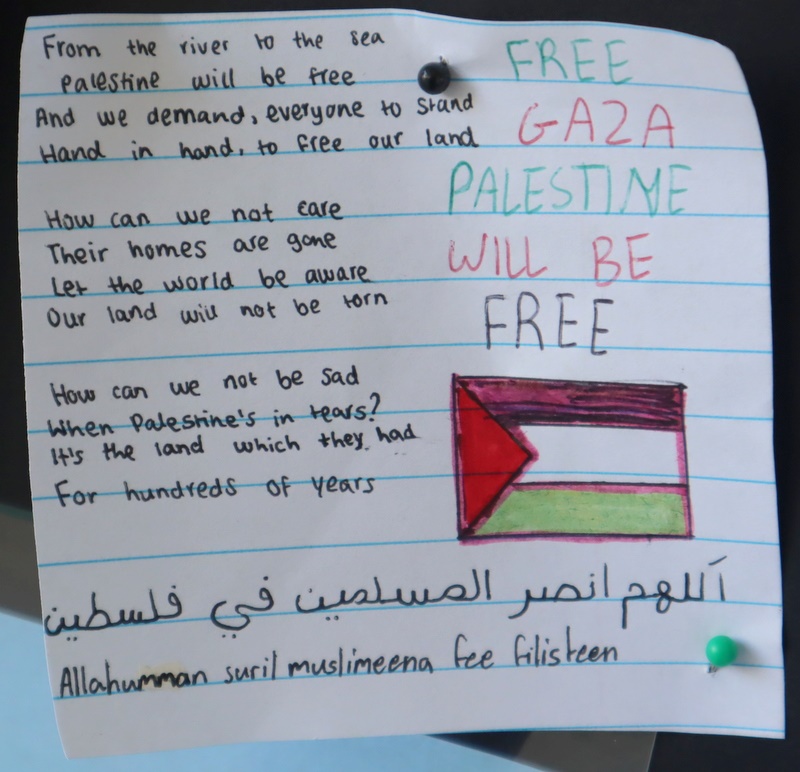 From the river to the sea
Palestine will be free
And we demand, everyone to stand
Hand in hand, to free our land
How can we not care
Their homes are gone
Let the world be aware
Our land will not be torn
How can we not be sad
When Palestine's in tears?
It's the land which they had
For hundreds of years
FREE
GAZA
PALESTINE
WILL BE
FREE
اَللهم انصر المسلمين في فلسطين
Allahumman suril muslimeena fee filisteen